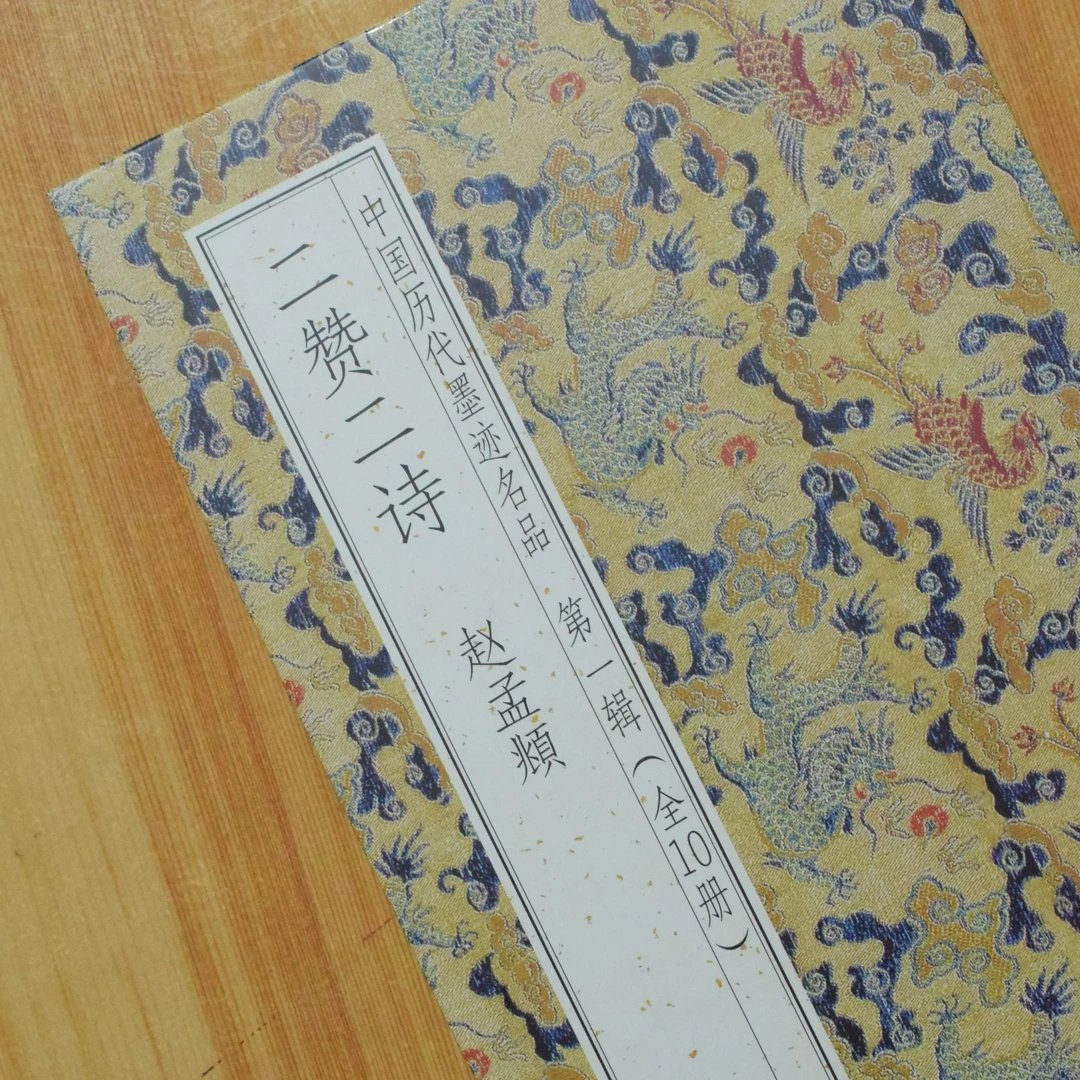 中国历代墨迹名品 第一辑（全10册）
二赞二诗 赵孟頫